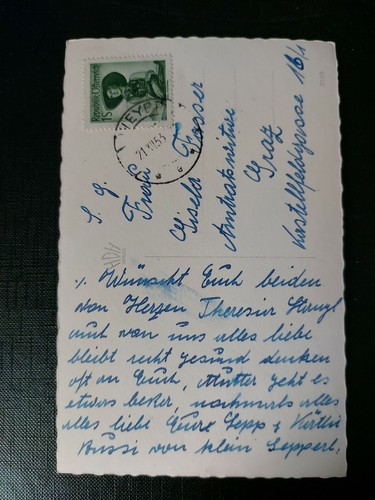 1S
Republik Österreich
21.XII.53
S. g.
Frau
Gisela Fasser
Graz
16/1
./. Wünscht Euch beiden
von Herzen Theresia
auch von uns alles liebe
bleibt recht gesund denken
oft an Euch, Mutter geht es
etwas besser, nochmals alles
alles liebe Eure Sepp &
Bussi von klein Sepperl.